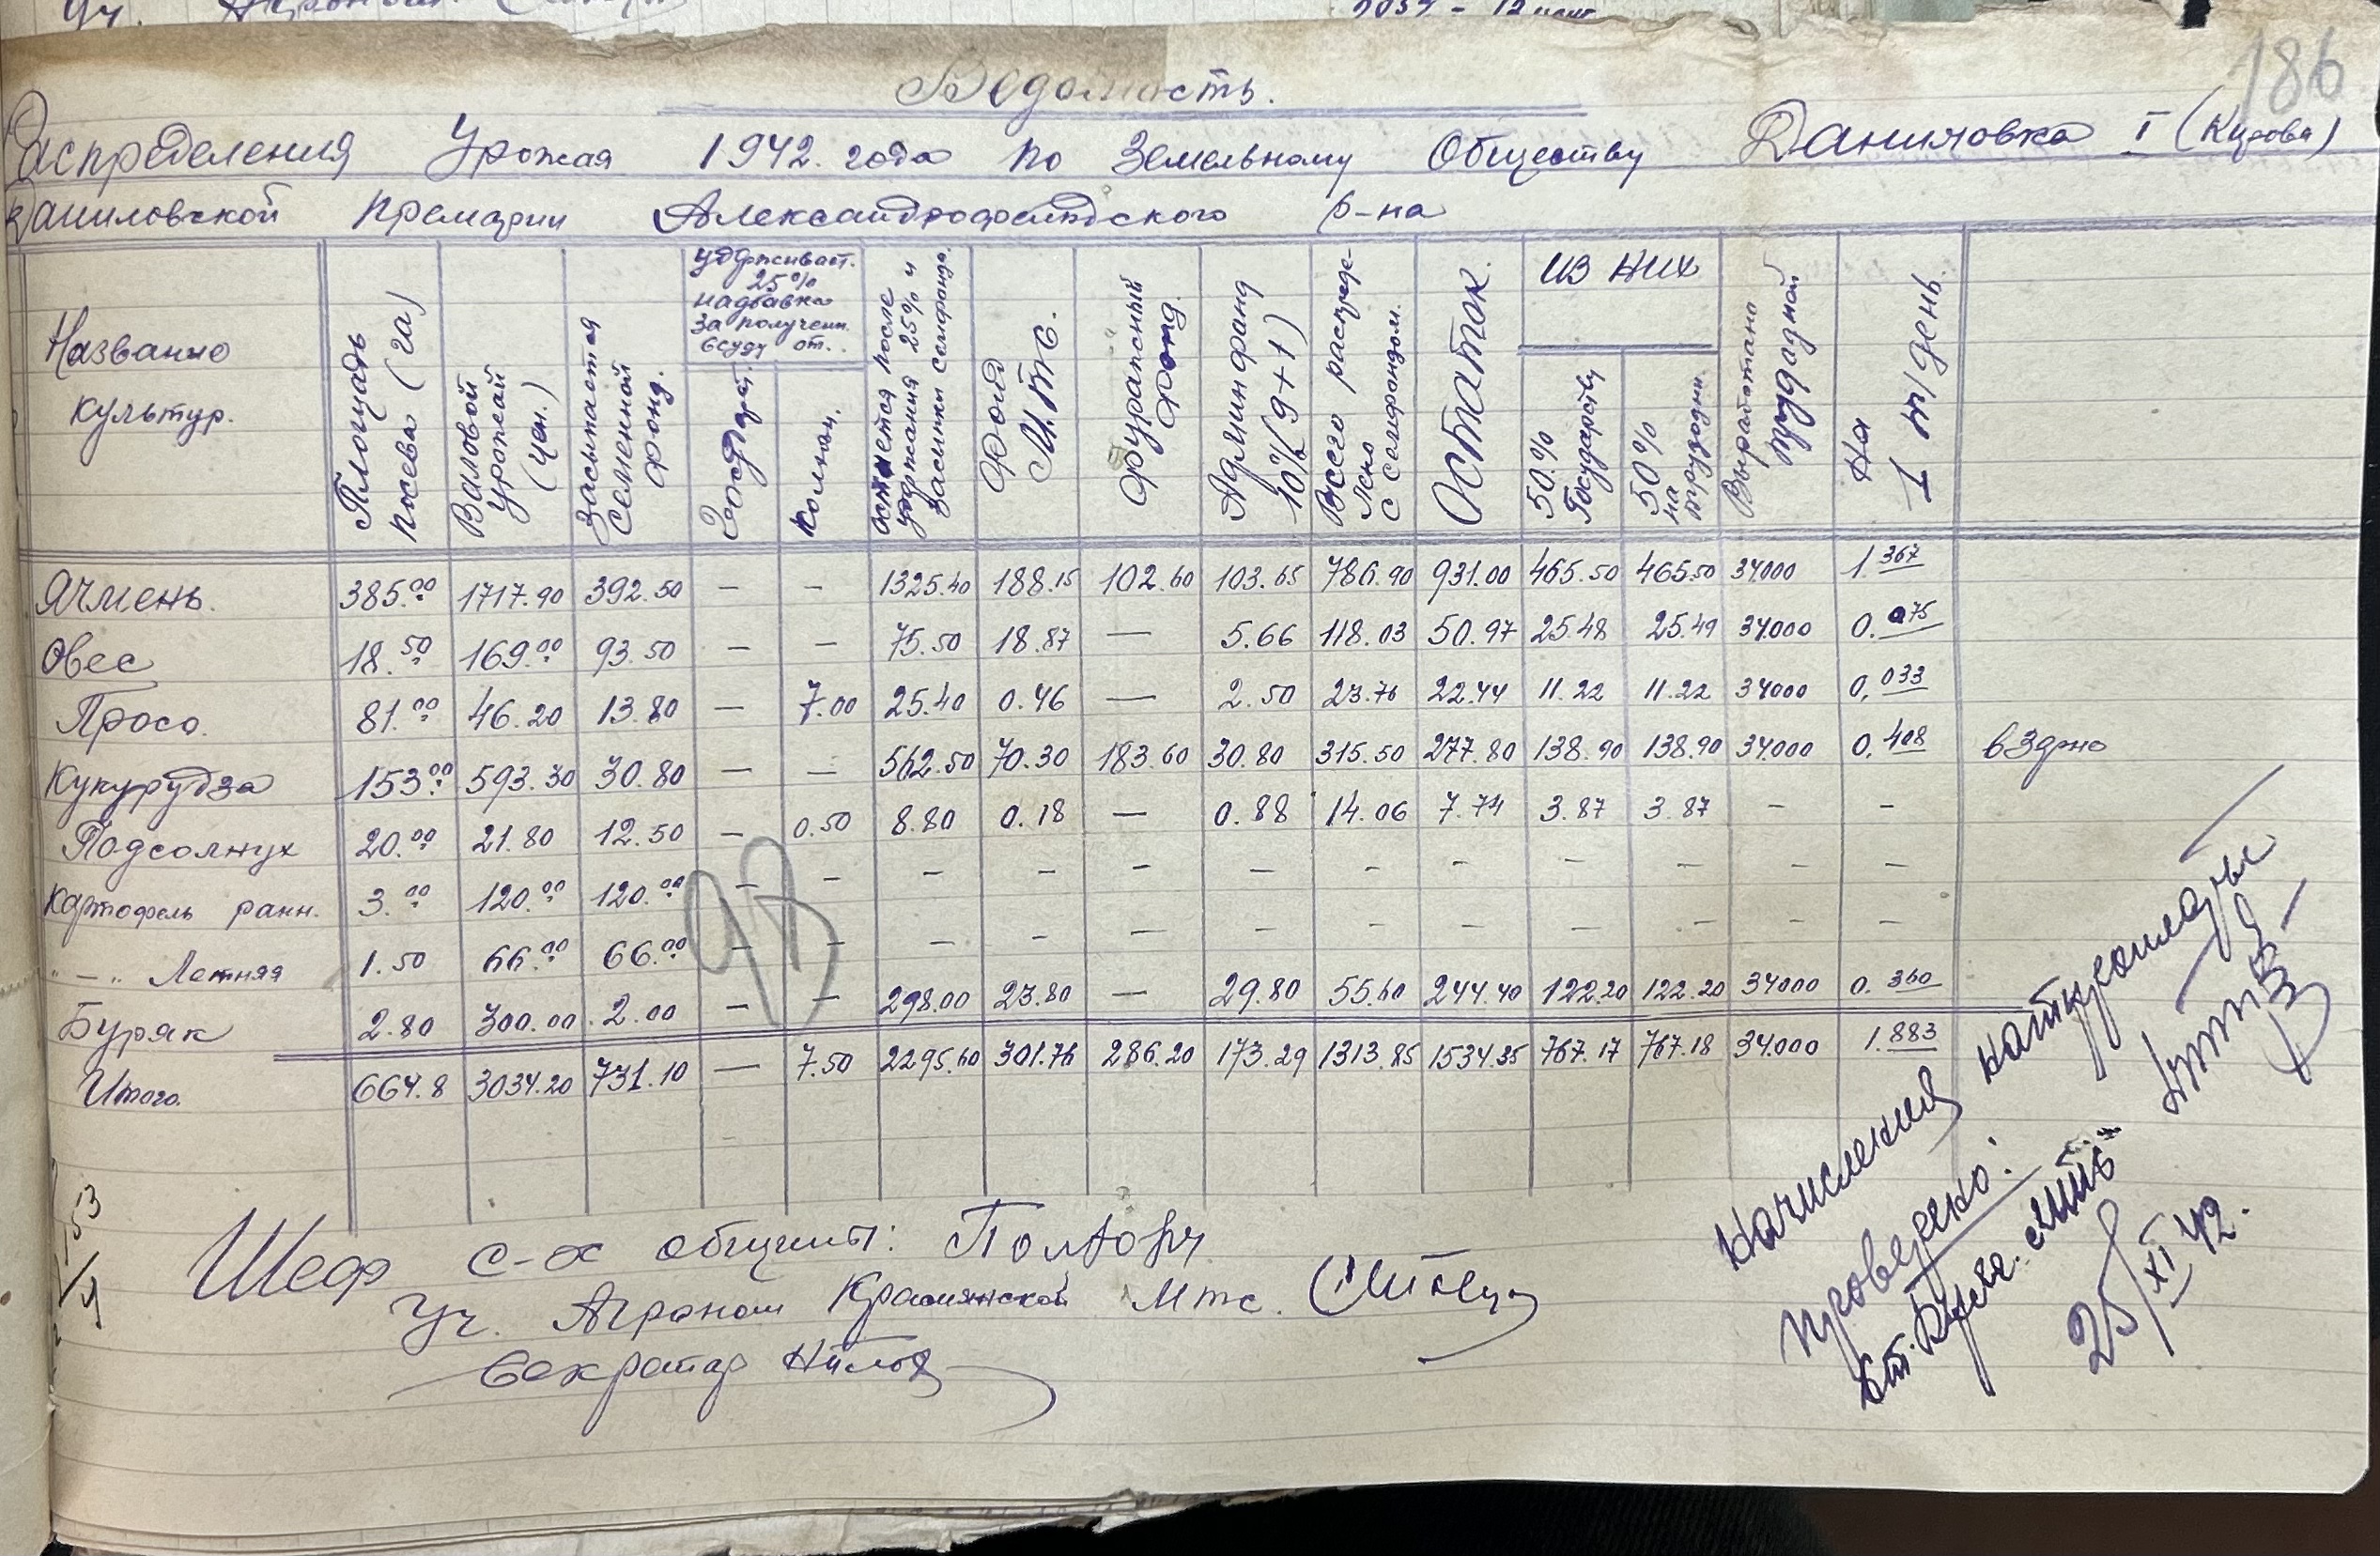 186
Ведомость.
Распределения Урожая 1942. года по Земельному Обществу Даниловка I (Кирова)
Даниловской Примарии Александрофельдского р-на
Название культур.
Площадь посева (га)
Валовой урожай (цен.)
Засыпается Семенной фонд.
удерживает. 25% надбавка за получен. ссуду от.
Государ.
Колхоз.
остается после удержания 25% и засыпки семфонда.
Фонд М.т.с.
Фуражный фонд.
Админ фонд 10% (9+1)
Всего распреде-лено с семфондом.
Остаток.
из них
50.% Государству
50% на трудодни.
Выработано трудодней
На 1 т/день.
Ячмень. 385.00 1717.90 392.50 — — 1325.40 188.15 102.60 103.65 786.90 931.00 465.50 465.50 34000 1.367
Овес 18.50 169.00 93.50 — — 75.50 18.87 — 5.66 118.03 50.97 25.48 25.49 34000 0.075
Просо. 81.00 46.20 13.80 — 7.00 25.40 0.46 — 2.50 23.76 22.44 11.22 11.22 34000 0,033
Кукурудза 153.00 593.30 30.80 — — 562.50 70.30 183.60 30.80 315.50 277.80 138.90 138.90 34000 0.408 в Здрно
Подсолнух 20.00 21.80 12.50 — 0.50 8.80 0.18 — 0.88 14.06 7.74 3.87 3.87 — —
Картофель ранн. 3.00 120.00 120.00 — — — — — — — — — — — —
" — " Летняя 1.50 66.00 66.00 — — — — — — — — — — — —
Буряк 2.80 300.00 2.00 — — 298.00 23.80 — 29.80 55.60 244.40 122.20 122.20 34000 0.360
Итого. 664.8 3034.20 731.10 — 7.50 2295.60 301.76 286.20 173.29 1313.85 1534.35 767.17 767.18 34.000 1.883
Шеф с-х общины:
Уч. Агроном Мтс.
Секретар
Начисления натуроплаты
проведено!
25/XI 42.